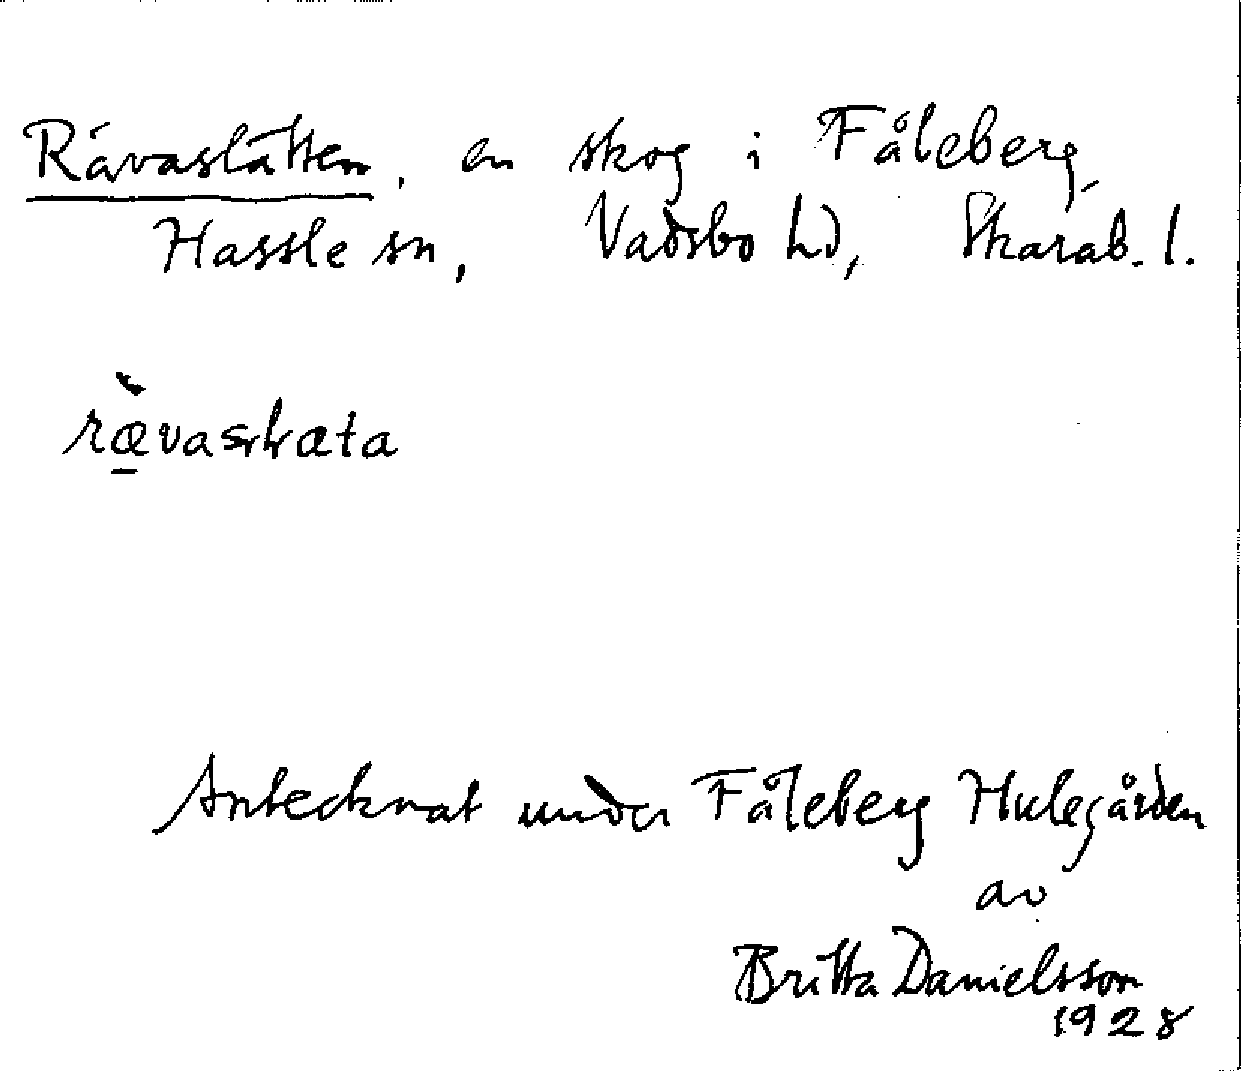 Rävaslätten, en skog i Fåleberg
Hassle sn, Vadsbo hd, Skarab. l.
Antecknat under Fåleberg Hulegården
av
Britta Danielsson
1928